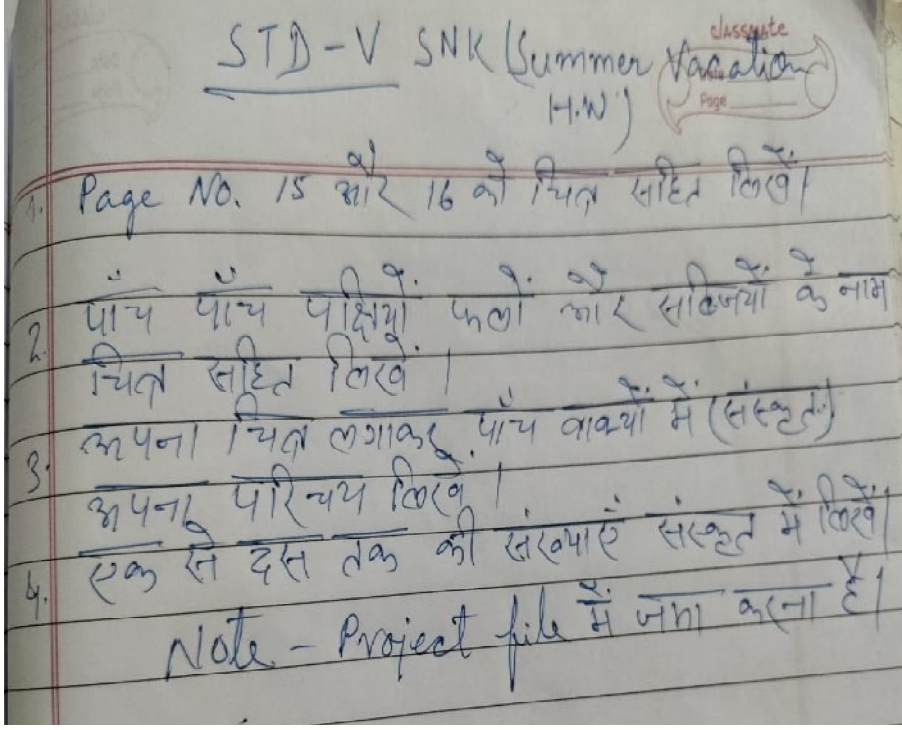 classmate
STD-V SNK (Summer Vacation
Page
H.W)
1. Page No. 15 और 16 को चित्र सहित लिखें।
2. पाँच पाँच पक्षियों फलों और सब्जियों के नाम
चित्र सहित लिखें।
3. अपना चित्र लगाकर पाँच वाक्यों में (संस्कृत)
अपना परिचय लिखें।
4. एक से दस तक की संख्याएँ संस्कृत में लिखें।
Note - Project file में जमा करना है।